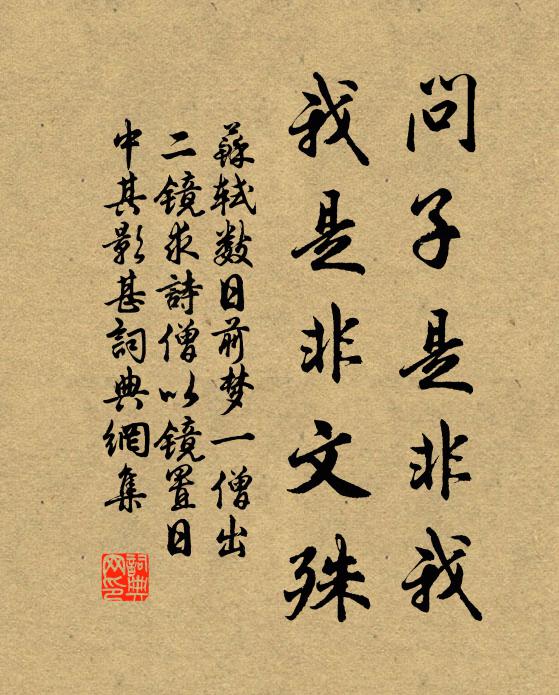 問子是非我
我是非文殊
蘇轼数日前梦一僧出
二镜求詩僧以镜置日
中其影甚詞典網集
詞典
网印